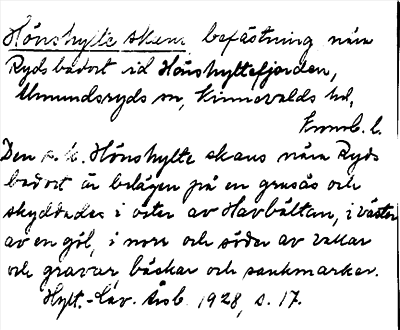 Hönshylte skans, befästning nära
Ryds badort vid Hönshyltefjorden,
Almundsryds sn, Kinnevalds hd,
Kronob. l.
Den s. k. Hönshylte skans nära Ryds
badort är belägen på en grusås och
skyddades i öster av Havbältan, i väster
av en göl, i norr och söder av vallar
och gravar, bäckar och sankmarker.
Hylt.-Cav. årsb. 1928, s. 17.